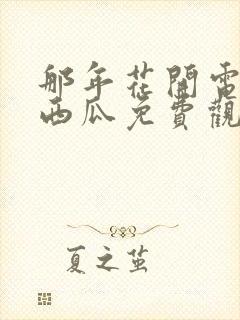 那年花開電
西瓜免費觀
夏之茧